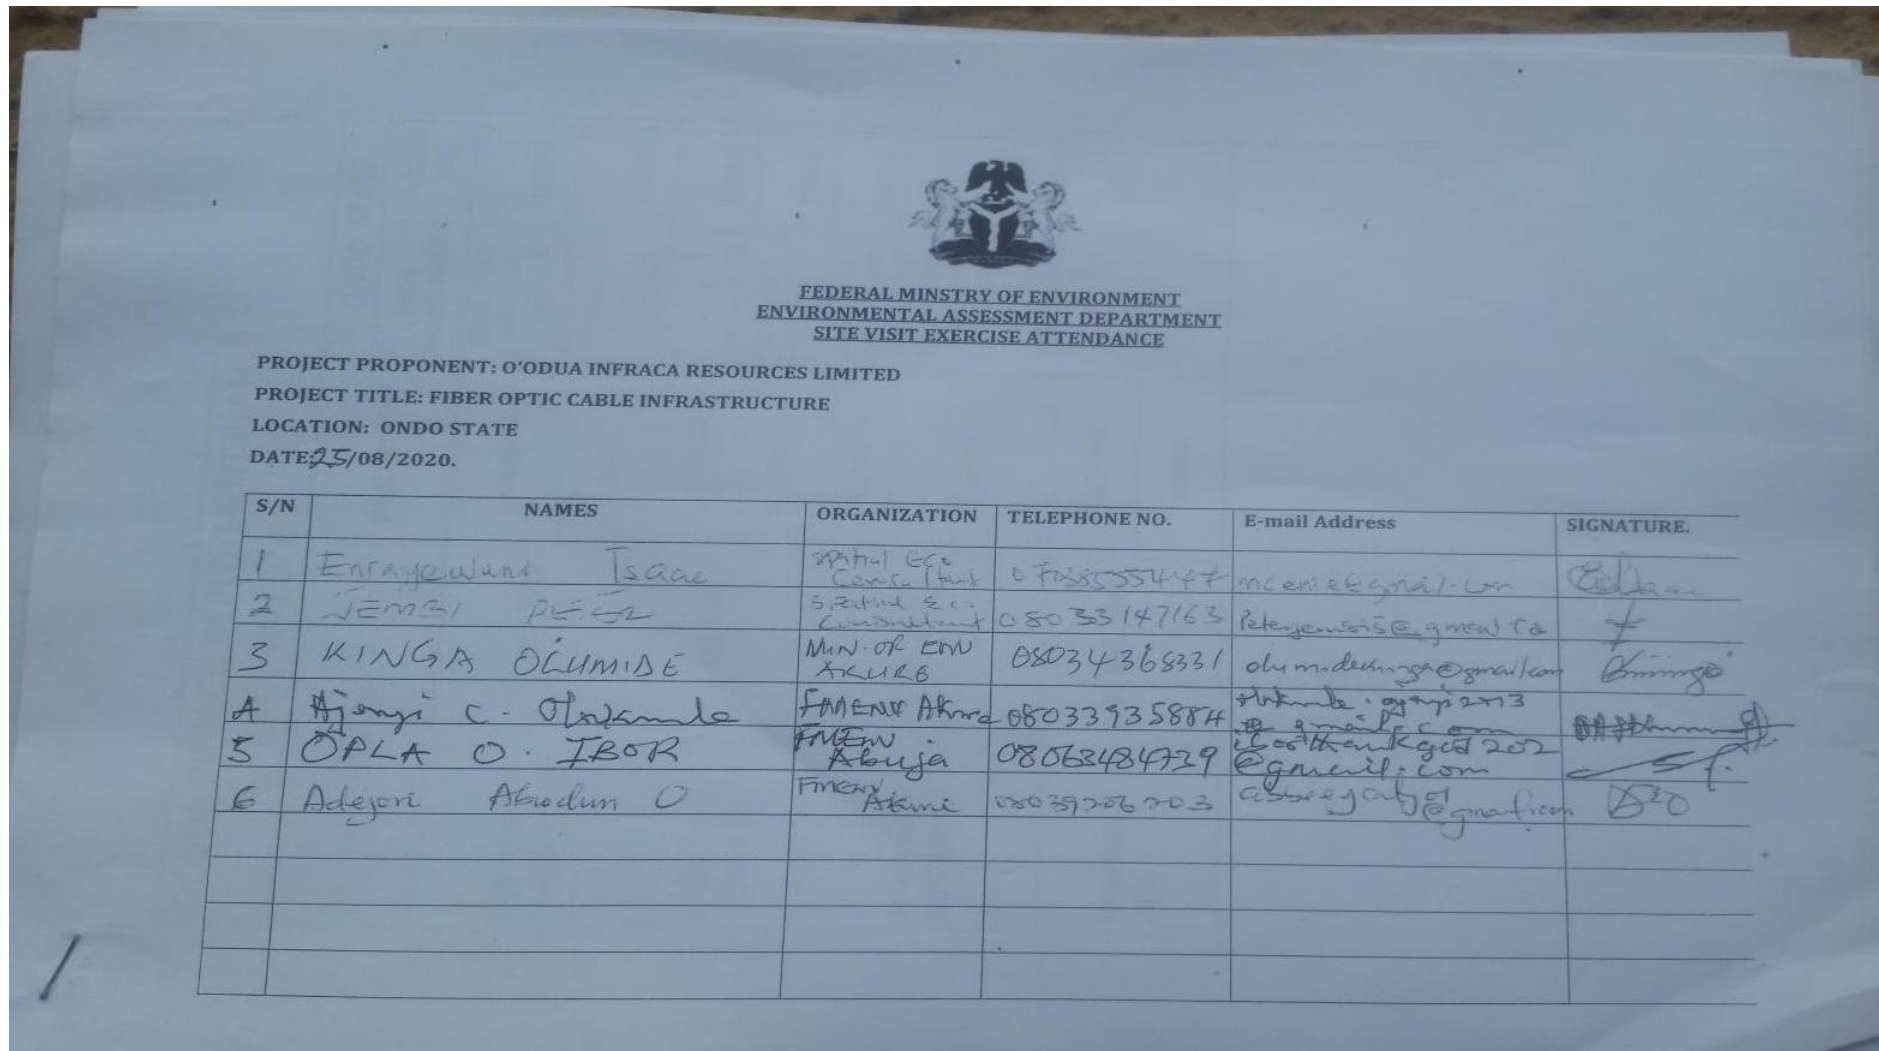 FEDERAL MINSTRY OF ENVIRONMENT
ENVIRONMENTAL ASSESSMENT DEPARTMENT
SITE VISIT EXERCISE ATTENDANCE
PROJECT PROPONENT: O'ODUA INFRACA RESOURCES LIMITED
PROJECT TITLE: FIBER OPTIC CABLE INFRASTRUCTURE
LOCATION: ONDO STATE
DATE:25/08/2020.
S/N NAMES ORGANIZATION TELEPHONE NO. E-mail Address SIGNATURE.
1 Isaac Spatial Eco
Consultant
2 Spatial Eco
Consultant 08033147163
3 KINGA OLUMIDE MIN. OF ENV
AKURE 08034368331
4 Ajenyi C. FMENV Akure 08033935884
@gmail.com
5 OPLA O. IBOR FMEnv
Abuja 08063484739 iborthankgod202
@gmail.com
6 Adejori Abiodun O FMEnv
Akure 08039206203